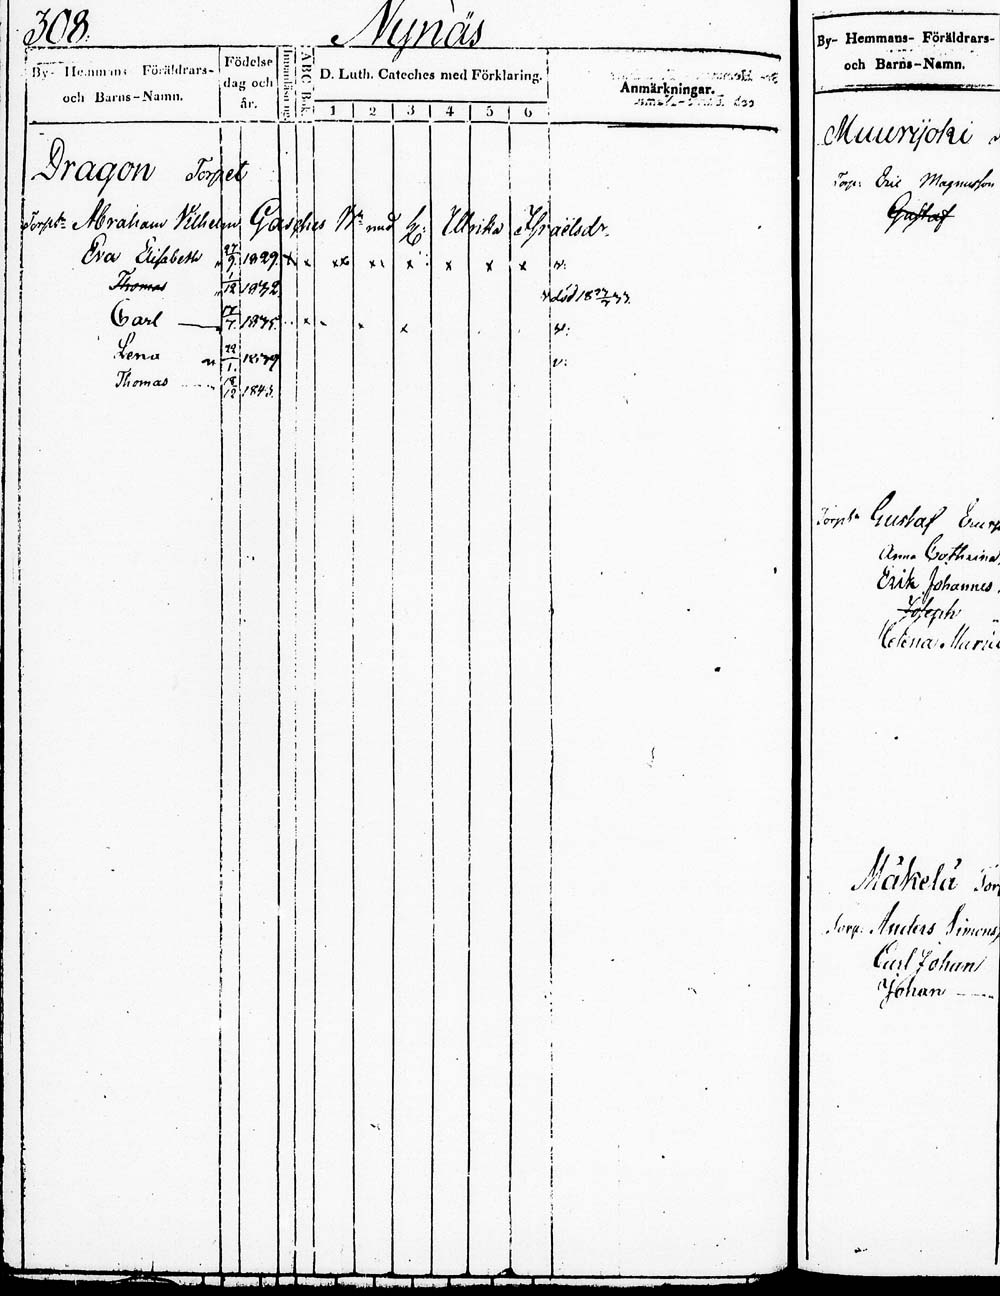 308.
Nynäs
By- Hemmans Föräldrars-
och Barns-Namn.
Födelse
dag och
år.
Innanläsning
ABC Bok.
D. Luth. Cateches med Förklaring.
1 2 3 4 5 6
Anmärkningar.
Dragon Torpet
Torp: Abraham Vilhelm Gasches med h: Ulrika Israëlsdr.
Eva Elisabeth 27/9. 1829. x x x x x x x x v:
Thomas 1/12 1832. död 18
Carl 17/7. 1835. x x v:
Lena 22/1. 1839 v:
Thomas 18/12 1843.
By- Hemmans- Föräldrars-
och Barns-Namn.
Muurijoki
Torp: Eric Magnusson
Gustaf
Torp: Gustaf
Anna Cathrina
Erik Johannes
Joseph
Helena Maria
Mäkelä Tor
Torp: Anders Simons
Carl Johan
Johan